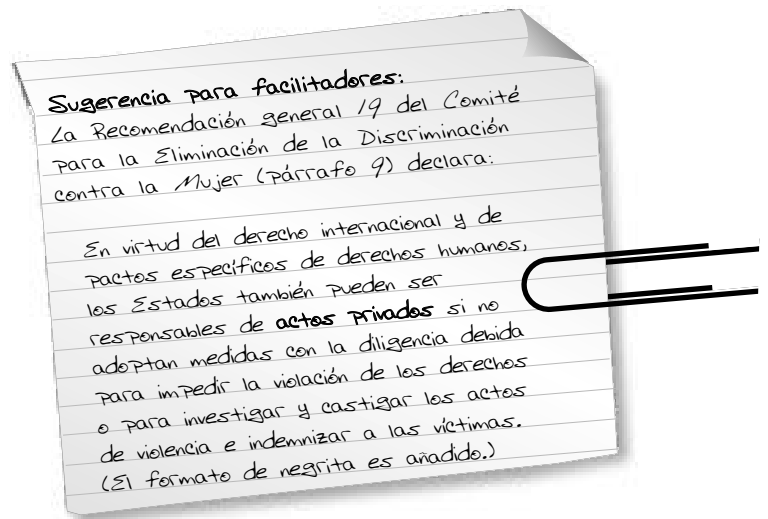 Sugerencia para facilitadores:
La Recomendación general 19 del Comité
para la Eliminación de la Discriminación
contra la Mujer (párrafo 9) declara:
En virtud del derecho internacional y de
pactos específicos de derechos humanos,
los Estados también pueden ser
responsables de actos privados si no
adoptan medidas con la diligencia debida
para impedir la violación de los derechos
o para investigar y castigar los actos
de violencia e indemnizar a las víctimas.
(El formato de negrita es añadido.)